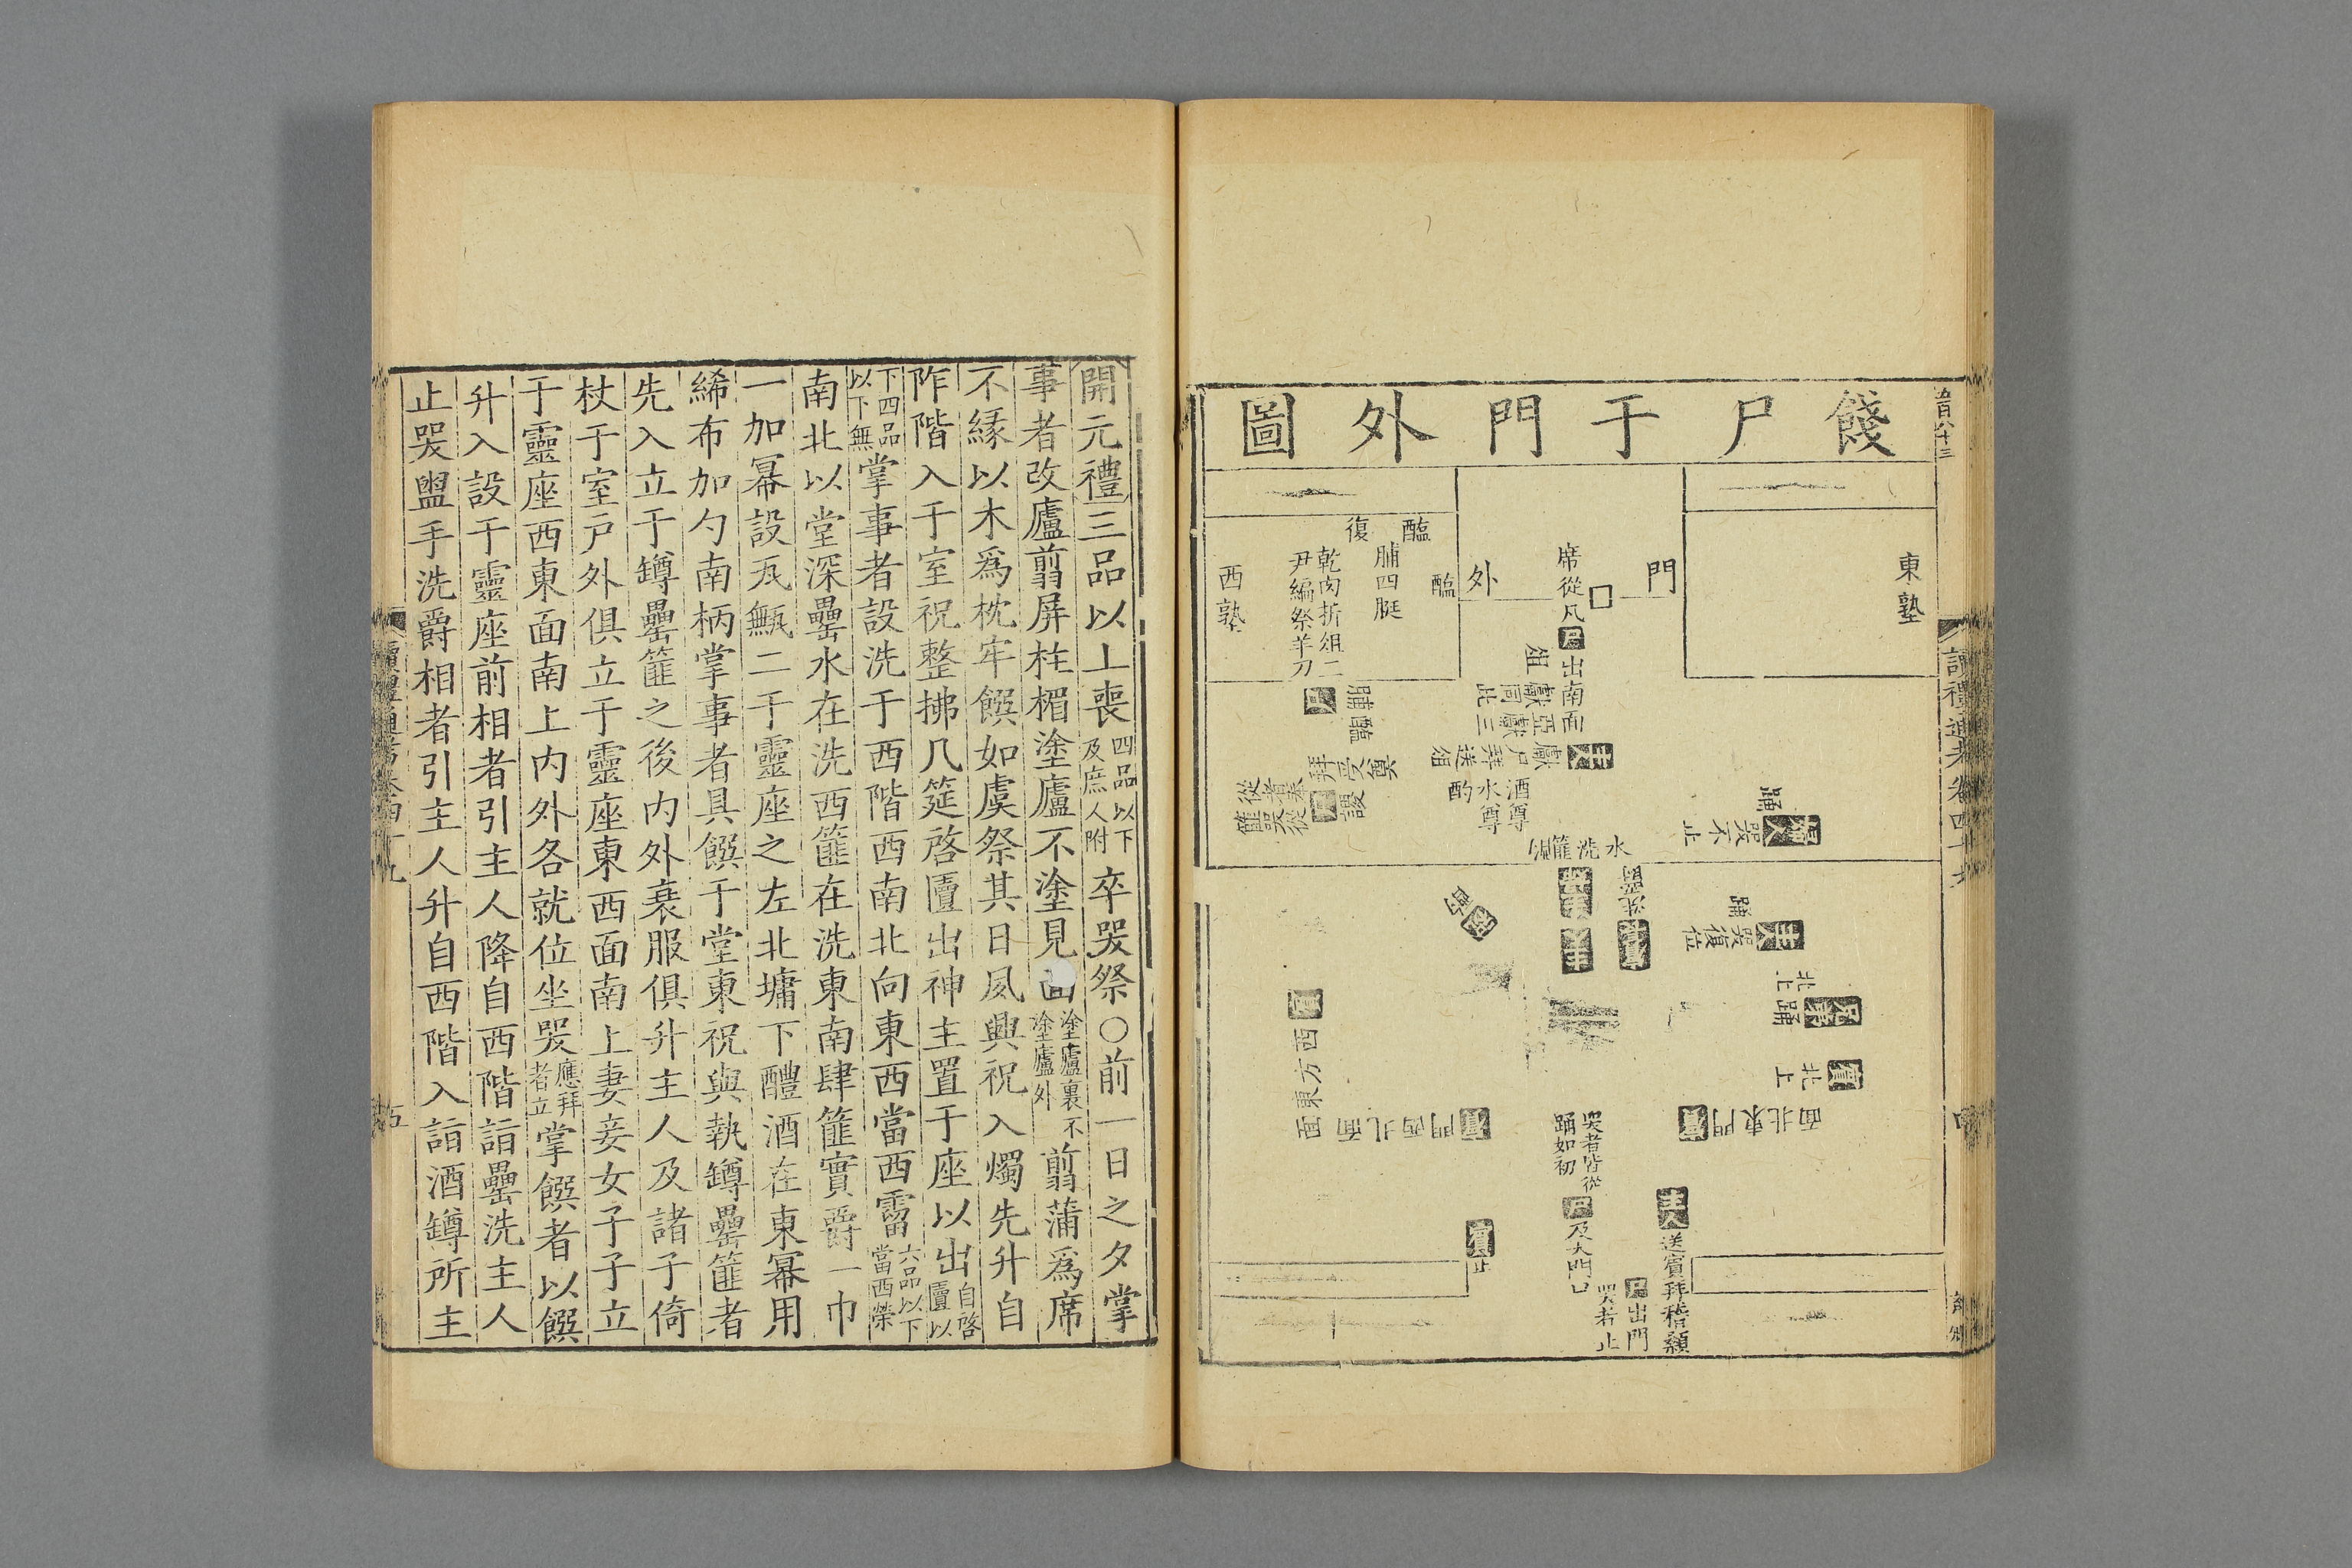 餞尸于門外圖
五百八十三
東塾
門
席從几尸出南面
俎
外
醢
醢
脯四脡
復
乾肉折俎二
尹編祭羊刀
西塾
主人
獻
酒尊
水尊
酌
水洗篚
踊
哭不止
主人
哭復位
踊
北上
踊
賓
北上
賓
門東北面
賓
門西北面
賓
西方東面
哭者皆從
踊如初
尸及大門口
尸出門
哭者止
主人送賓拜稽顙
賓止
開元禮三品以上喪四品以下及庶人附卒哭祭○前一日之夕掌
事者改廬翦屏柱楣塗廬不塗見面塗廬裏不塗廬外翦蒲爲席
不緣以木爲枕牢饌如虞祭其日夙興祝入燭先升自
阼階入于室祝整拂几筵啓匵出神主置于座以出自啓匵以
下四品以下無掌事者設洗于西階西南北向東西當西霤六品以下當西榮
南北以堂深罍水在洗西篚在洗東南肆篚實爵一巾
一加冪設瓦甒二于靈座之左北墉下醴酒在東冪用
絺布加勺南柄掌事者具饌于堂東祝與執罇罍篚者
先入立于罇罍篚之後內外衰服俱升主人及諸子倚
杖于室戶外俱立于靈座東西面南上妻妾女子子立
于靈座西東面南上內外各就位坐哭應拜者立掌饌者以饌
升入設于靈座前相者引主人降自西階詣罍洗主人
止哭盥手洗爵相者引主人升自西階入詣酒罇所主